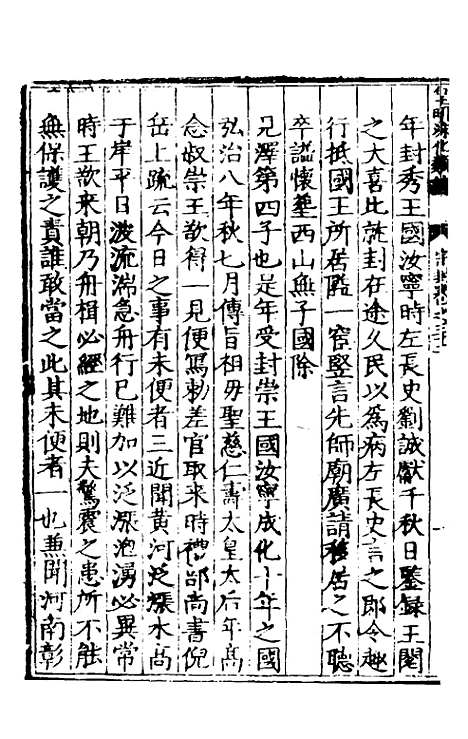 年封秀王國汝寧時左長史劉誠獻千秋日鑒録王閱
之大喜比就封在途久民以為病左長史言之即令趣
行抵國王所居隘一宦竪言先師廟廣請雜居之不聽
卒謚懷塟西山無子國除
兄澤第四子也是年受封崇王國汝寧成化十年之國
弘治八年秋七月傳旨相毋聖慈仁壽太皇太后年高
念叔崇王欲得一見便寫勅差官取來時禮部尚書倪
岳上疏云今日之事有未便者三近聞黄河泛漲水高
于岸平日波流湍急舟行已難加以泛漲洶湧必異常
時王欲来朝乃舟楫必經之地則夫驚震之患所不能
無保護之責誰敢當之此其未便者一也兼聞河南彰